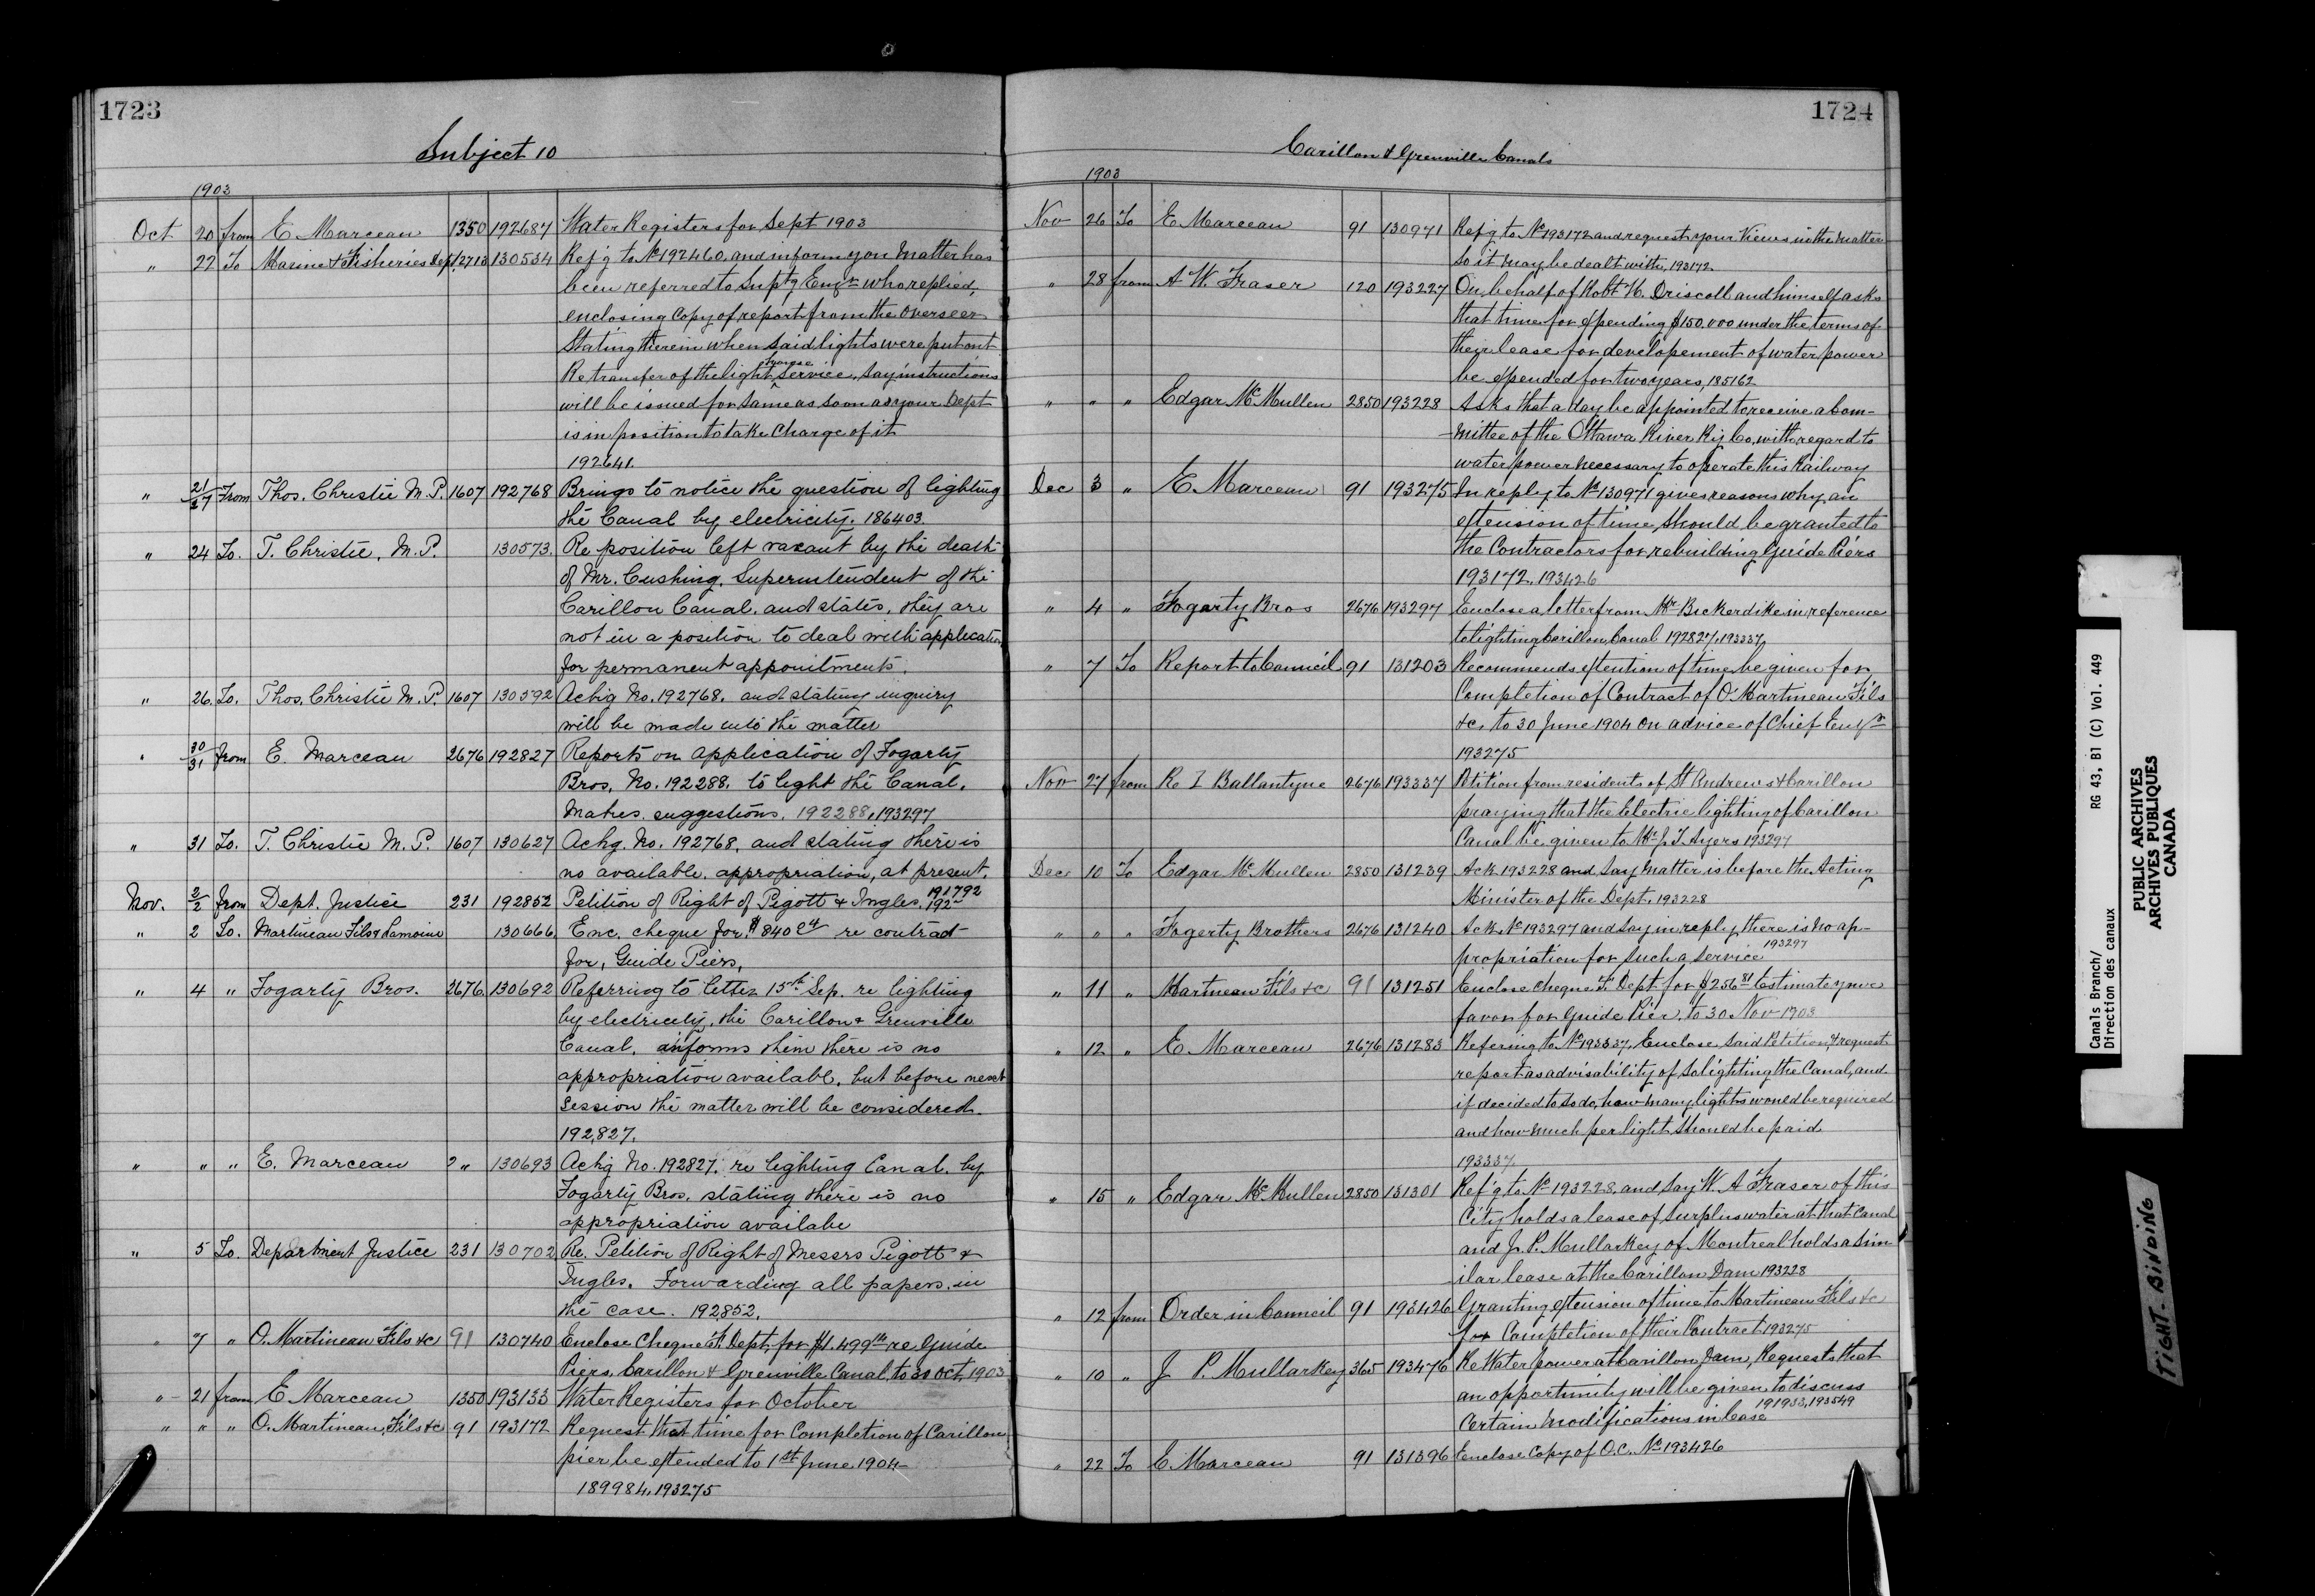 1723
Subject 10
1903
Oct 20 from E Marceau 1350 192687 Water Registers for Sept 1903
" 22 To Marine & Fisheries Dept. 2713 130534 Ref'g to No 192460, and inform you Matter has
been referred to Suptg Engr who replied,
enclosing Copy of report from the Overseer
Stating therein when said lights were put out
Re transfer of the light house Service, say instructions
will be issued for same as soon as your Dept
is in position to take Charge of it
192641.
" 21/27 From Thos. Christie M.P. 1607 192768 Brings to notice the question of lighting
the Canal by electricity. 186403.
" 24 To. T. Christie, M.P. 130573. Re position left vacant by the death
of Mr. Cushing, Superintendent of the
Carillon Canal. and states, they are
not in a position to deal with application
for permanent appointments.
" 26. To. Thos. Christie M.P. 1607 130592 Ackg No. 192768. and stating inquiry
will be made into the matter
" 30/31 from E. Marceau 2676 192827 Reports on application of Fogarty
Bros. No. 192288. to light the Canal.
Makes suggestions. 192288, 193297
" 31 To. T. Christie M.P. 1607 130627 Ackg. No. 192768, and stating there is
no available appropriation, at present.
Nov. 2/2 from Dept. Justice 231 192852 Petition of Right of Pigott & Ingles. 191792
192
" 2 To. Martineau Fils & Lamoine 130666. Enc. cheque for $840 24 re contract
for, Guide Piers,
" 4 " Fogarty Bros. 2676. 130692 Referring to letter 15th Sep. re lighting
by electricity, the Carillon & Grenville
Canal. informs them there is no
appropriation availabl, but before next
session the matter will be considered.
192,827.
" " " E. Marceau 2 " 130693 Ackg No. 192827. re lighting Canal. by
Fogarty Bros. stating there is no
appropriation availabe
" 5 To. Department Justice 231 130702 Re. Petition of Right of Messrs Pigott &
Ingles. Forwarding all papers in
the case. 192852.
" 7 " O. Martineau Fils &c 91 130740 Enclose Cheque F. Dept, for $1.499 re Guide
Piers, Carillon & Grenville Canal, to 31 Oct, 1903
" 21 from E Marceau 1350 193133 Water Registers for October
" " " O. Martineau, Fils &c 91 193172 Request that time for Completion of Carillon
pier be extended to 1st June 1904
189984, 193275
1724
Carillon & Grenville Canals
1903
Nov 26 To E Marceau 91 130971 Ref'g to No 193172 and request your Views in the Matter
so it may be dealt with, 193172
" 28 from A W. Fraser 120 193227 On behalf of Robt H. Driscoll and himself asks
that time for expending $150.000 under the terms of
their lease for developement of water power
be extended for two years, 185162
" " " Edgar McMullen 2850 193228 Asks that a day be appointed to receive a Com-
-mittee of the Ottawa River Ry Co, with regard to
water power necessary to operate this Railway
Dec 3 " E Marceau 91 193275 In reply to No 130971 gives reasons why an
extension of time, should be granted to
the Contractors for rebuilding Guide Piers
193172, 193426
" 4 " Fogarty Bros 2676 193297 Enclose a letter from Mr Bickerdike in reference
to lighting Carillon Canal 192827, 193337
" 7 To Report to Council 91 131203 Recommends extention of time be given for
Completion of Contract of O Martineau Fils
&c, to 30 June 1904 on advice of Chief Engr
193275
Nov 27 from Re I Ballantyne 2676 193337 Petition from residents of St Andrews & Carillon
praying that the Electric lighting of Carillon
Canal be given to Mr J. T. Ayers 193297
Dec 10 To Edgar McMullen 2850 131239 Ack 193228 and say matter is before the Acting
Minister of the Dept. 193228
" " " Fogerty Brothers 2676 131240 Ack No 193297 and say in reply, there is no ap-
propriation for such a service 193297
" 11 " Martineau Fils &c 91 131251 Enclose cheque F. Dept for $256 81 Estimate your
favor for Guide Pier, to 30 Nov 1903
" 12 " E. Marceau 2676 131283 Refering to No 193337, Enclose said Petition, & request
report as advisability of so lighting the Canal, and
if decided to so do, how many lights would be required
and how much per light should be paid
193337.
" 15 " Edgar McMullen 2850 131301 Ref'g to No 193228, and say W. A Fraser of this
City holds a lease of surplus water at that Canal
and J. P. Mullarkey of Montreal holds a Sim-
ilar lease at the Carillon Dam 193228
" 12 from Order in Council 91 193426 Granting extension of time to Martineau Fils &c
for Completion of their Contract 193275
" 10 " J P. Mullarkey 365 193476 Re Water power at Carillon Dam, Requests that
an opportunity will be given to discuss
Certain Modifications in lease 191933, 193549
" 22 To E. Marceau 91 131396 Enclose Copy of O.C. No 193426
Canals Branch/ RG 43, B1 (C) Vol. 449
Direction des canaux
PUBLIC ARCHIVES
ARCHIVES PUBLIQUES
CANADA
TIGHT BINDING